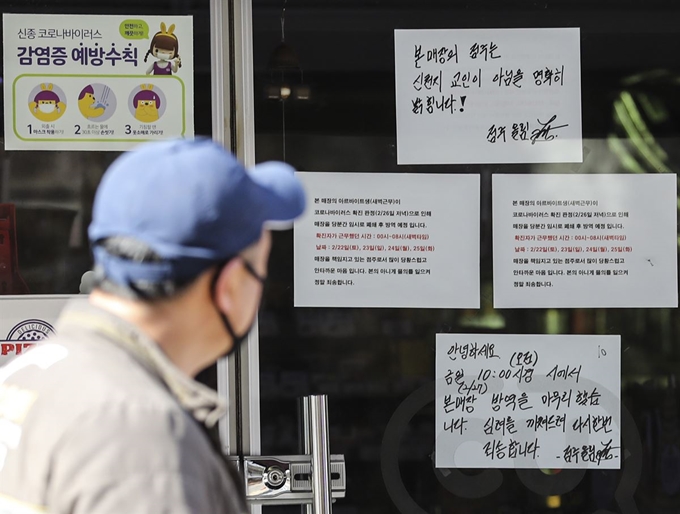 신종 코로나바이러스
감염증 예방수칙
1
2
3
본 매장의 점주는
신천지 교인이 아님을 명확히
밝힙니다!
점주 올림
본 매장의 아르바이트생(새벽근무)이
코로나바이러스 확진 판정(2/26일 저녁)으로 인해
매장을 당분간 임시로 폐쇄 후 방역 예정 입니다.
확진자가 근무했던 시간 : 00시~08시(새벽타임)
날짜 : 2/22일(토), 23일(일), 24일(월), 25일(화)
매장을 책임지고 있는 점주로서 많이 당황스럽고
안타까운 마음 입니다. 본의 아니게 물의를 일으켜
정말 죄송합니다.
본 매장의 아르바이트생(새벽근무)이
코로나바이러스 확진 판정(2/26일 저녁)으로 인해
매장을 당분간 임시로 폐쇄 후 방역 예정 입니다.
확진자가 근무했던 시간 : 00시~08시(새벽타임)
날짜 : 2/22일(토), 23일(일), 24일(월), 25일(화)
매장을 책임지고 있는 점주로서 많이 당황스럽고
안타까운 마음 입니다. 본의 아니게 물의를 일으켜
정말 죄송합니다.
안녕하세요 (오전)
금일 10:00시경 시에서
(2/27)
본매장 방역을 마무리 했습
니다. 심려를 끼쳐드려 다시한번
죄송합니다. -점주 올림
DELICIOUS